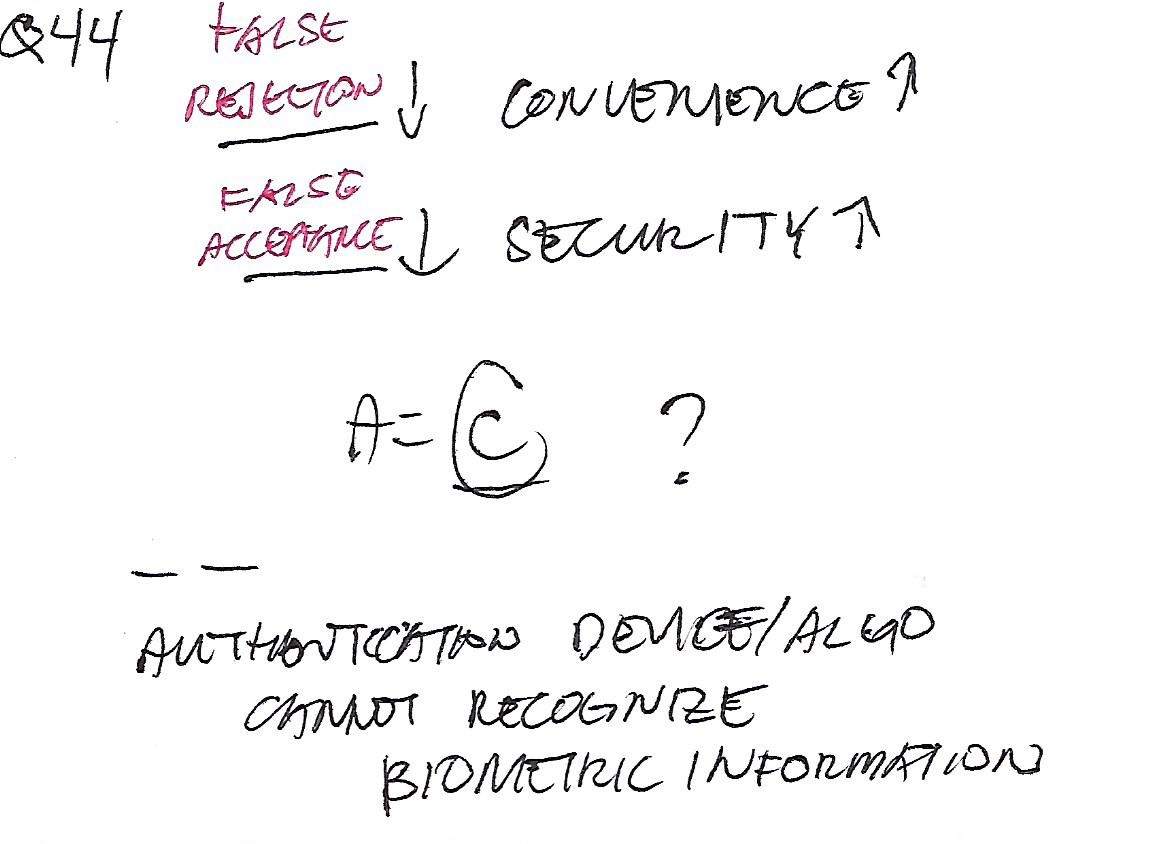 Q44 FALSE
REJECTION ↓ CONVENIENCE ↑
FALSE
ACCEPTANCE ↓ SECURITY ↑
A = C ?
— —
AUTHENTICATION DEVICE/ALGO
CANNOT RECOGNIZE
BIOMETRIC INFORMATION